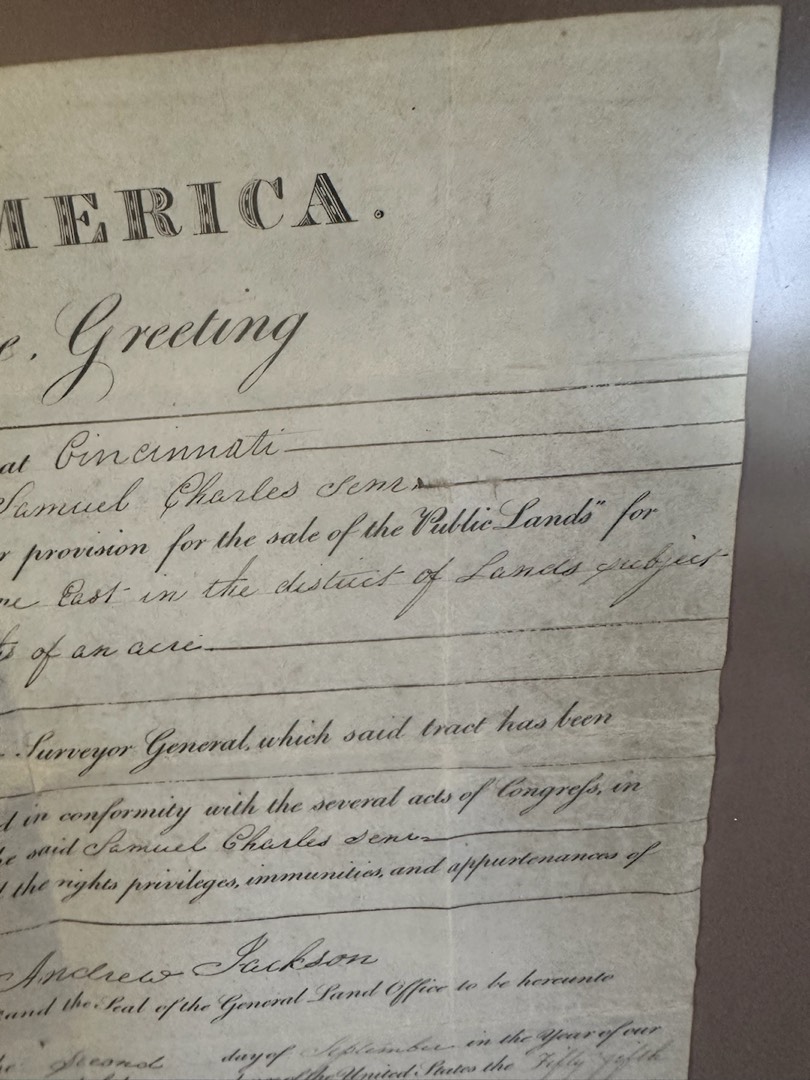 MERICA.
e, Greeting
at Cincinnati
Samuel Charles Senr
r provision for the sale of the "Public Lands" for
East in the district of Lands subject
of an acre
Surveyor General, which said tract has been
d in conformity with the several acts of Congreſs, in
e said Samuel Charles Senr
the rights privileges, immunities, and appurtenances of
Andrew Jackson
and the Seal of the General Land Office to be hereunto
he Second day of September in the Year of our
of the United States the Fifty fifth